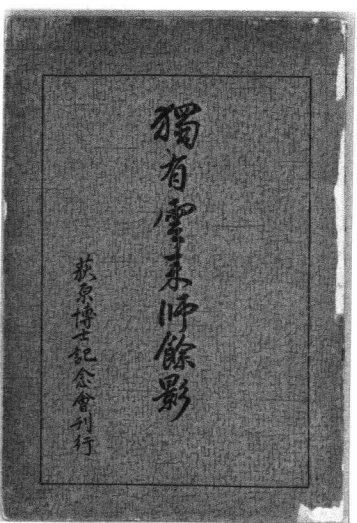 獨有雲来師餘影
荻原博士記念會刊行